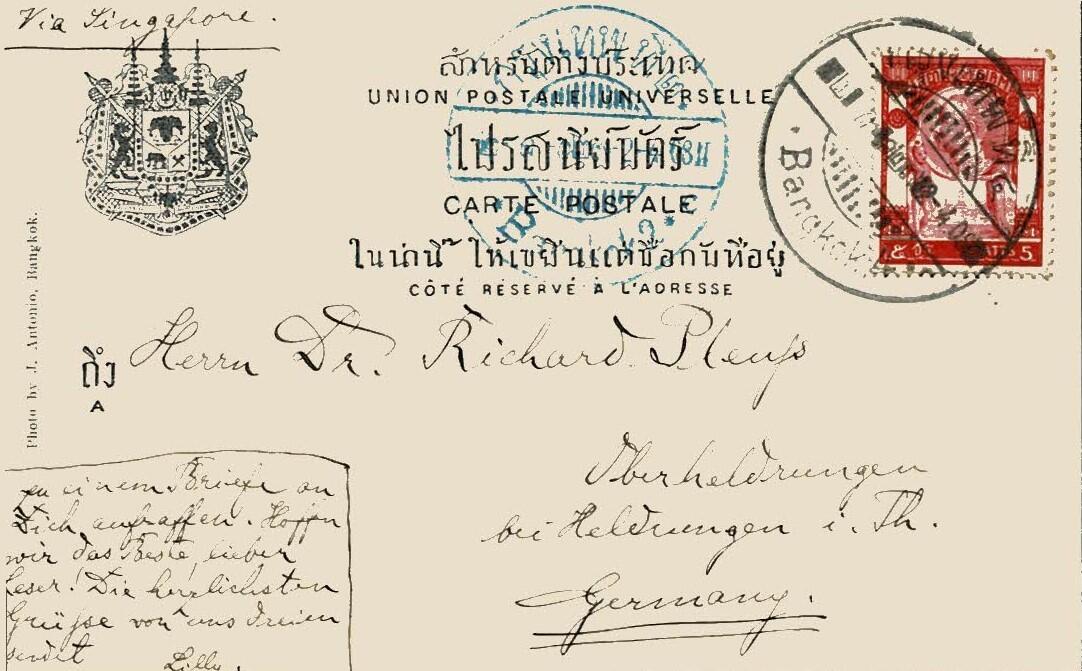 Via Singapore.
สำหรับต่างประเทศ
UNION POSTALE UNIVERSELLE
ไปรสนีย์บัตร์
CARTE POSTALE
ในน่านี้ ให้เขียนแต่ชื่อกับที่อยู่
CÔTÉ RÉSERVÉ À L'ADRESSE
Bangkok
5
Photo by J. Antonio, Bangkok.
ถึง
A
Herrn Dr. Richard Pleuß
Oberheldrungen
bei Heldrungen i. Th.
Germany.
zu einem Briefe an
Dich aufraffen. Hoffen
wir das Beste, lieber
Leser! Die herzlichsten
Grüße von uns dreien
sendet
Lilly.